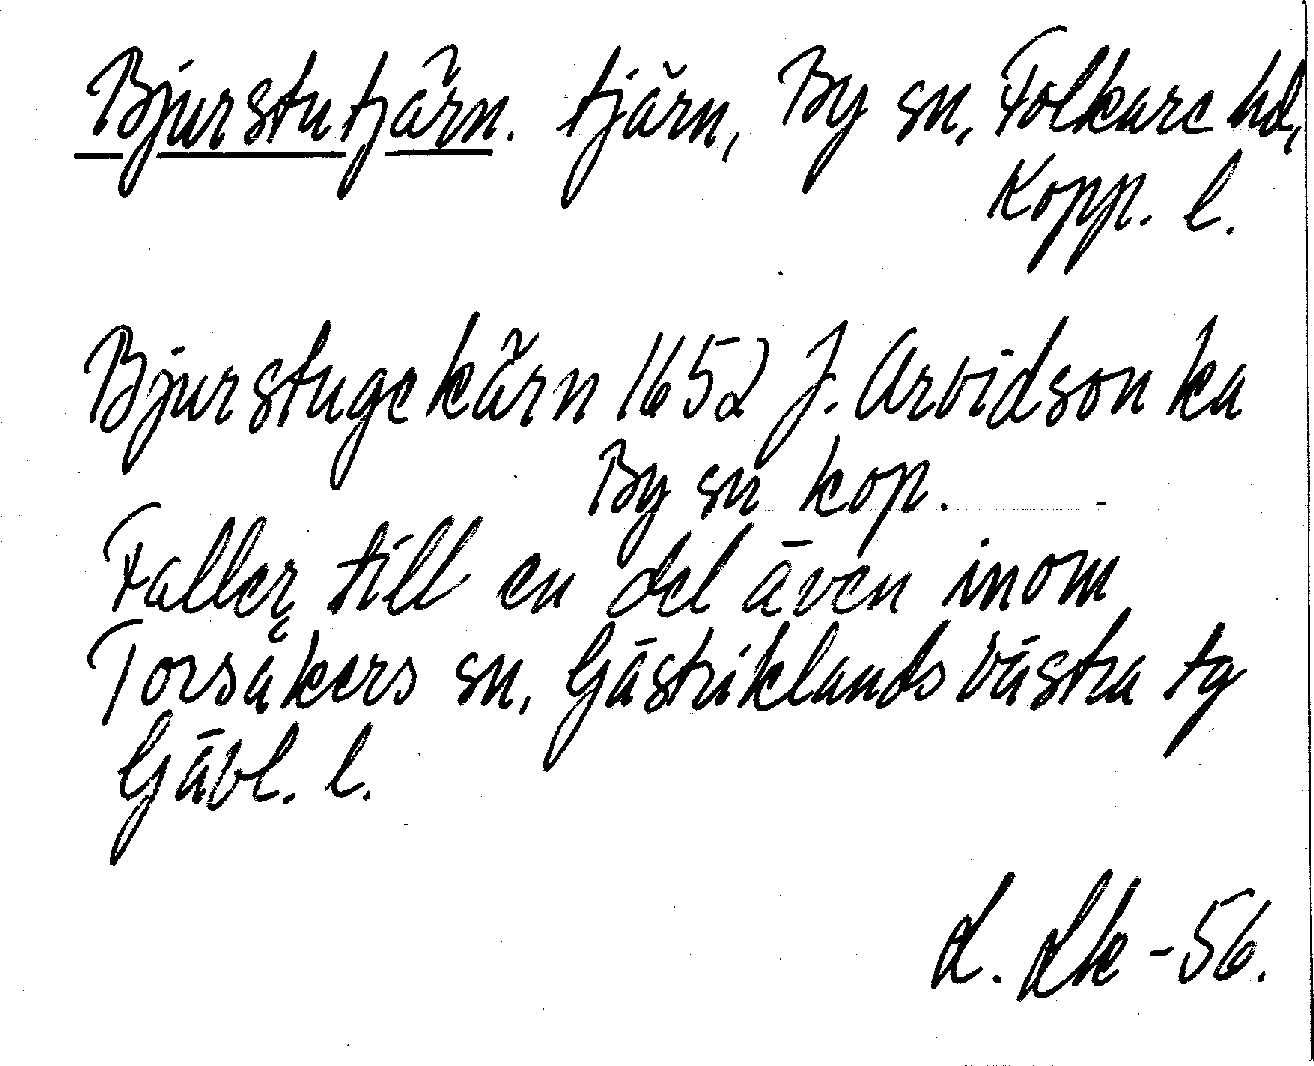 Bjurstutjärn. tjärn, By sn, Folkare hd,
Kopp. l.
Bjurstugekärn 1652 J. Arvidson ka
By sn kop.
Faller till en del även inom
Torsåkers sn, Gästriklands västra tg
Gävl. l.
-56.